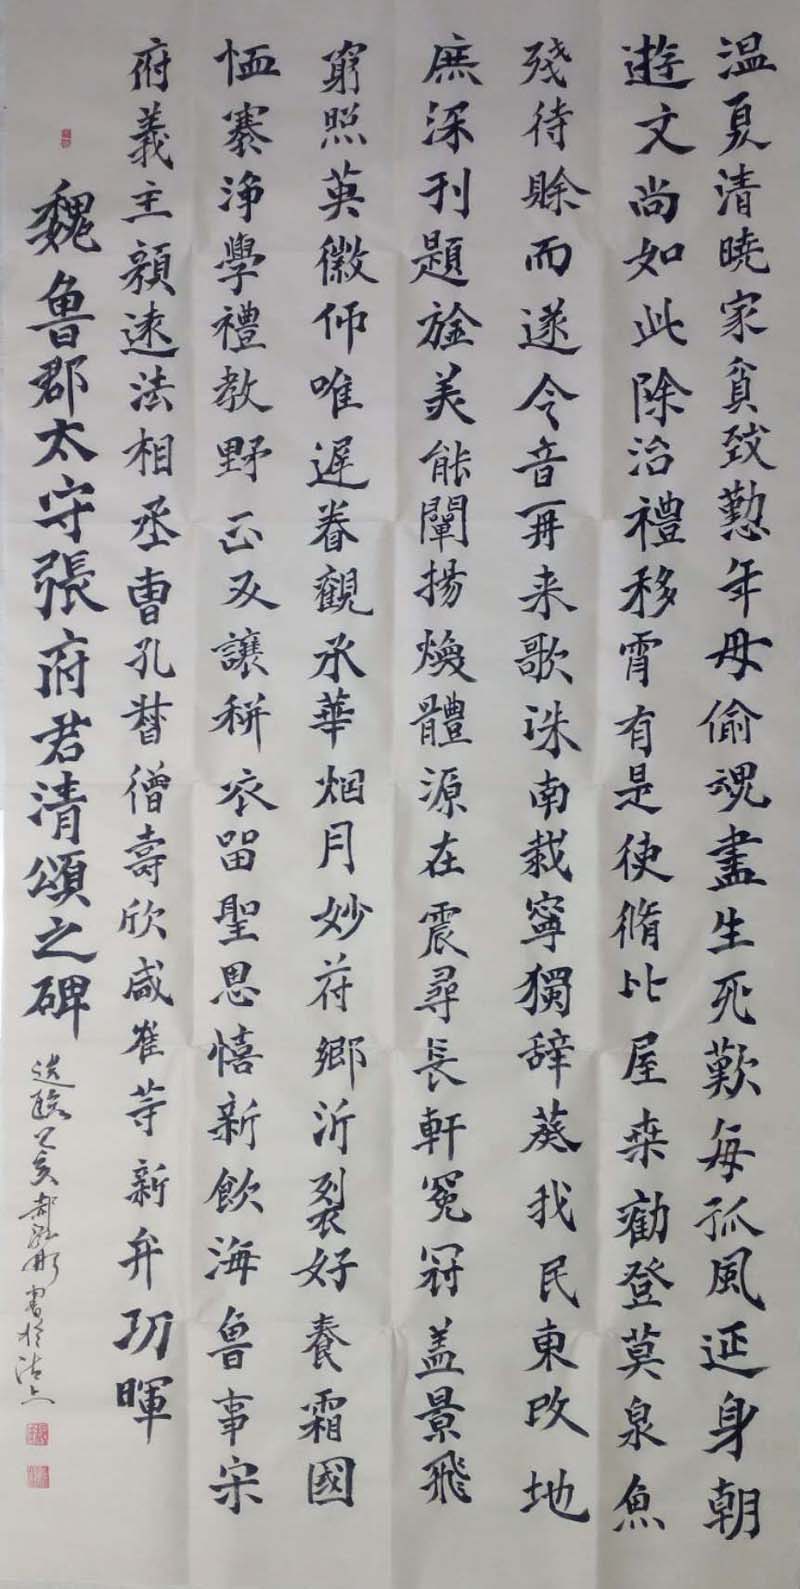 温夏清曉家貧致懃年毋偷魂盡生死歎每孤風延身朝
遊文尚如此除治禮移霄有是使脩比屋桒勸登莫泉魚
殘待賒而遂令音再来歌洙南栽寧獨辞葵我民東改地
庶深刊題旌美能闡揚煥體源在震尋長軒冕冠盖景飛
窮照英徽仰唯遅眷觀承華烟月妙苻鄉沂裂好養霜國
恤寨浄學禮教野正又讓秝衣留聖思憘新飲海魯事宋
府義主顏逺法相丞曹孔督僧壽欣咸崔䓁新弁功暉
魏魯郡太守張府君清頌之碑
選臨己亥書於